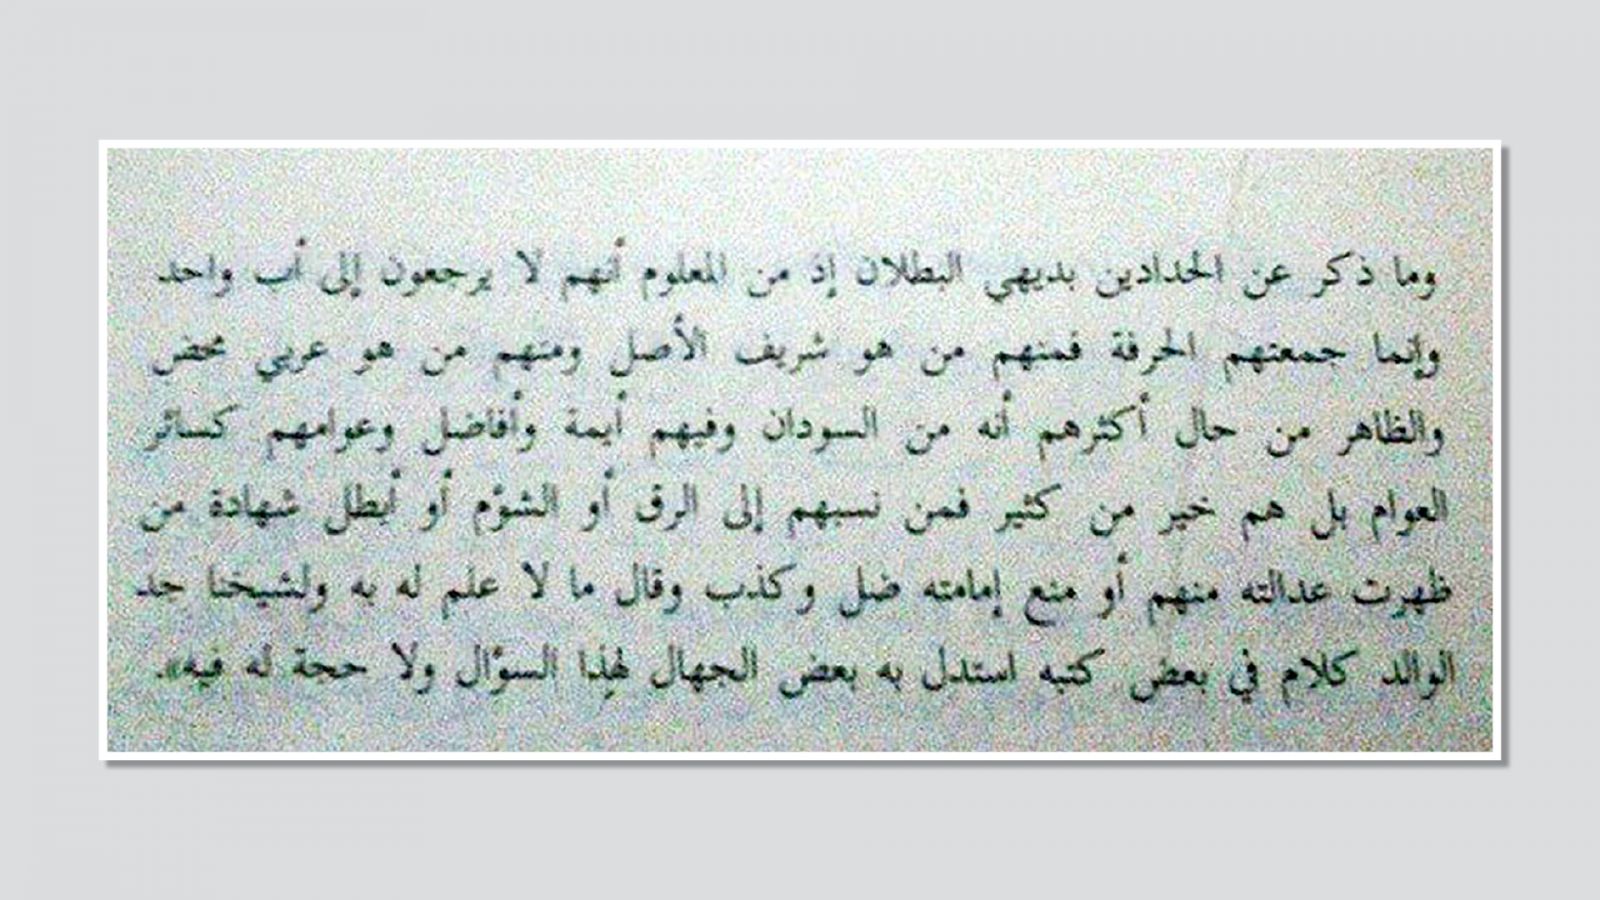 وما ذكر عن الحدادين بديهي البطلان إذ من المعلوم أنهم لا يرجعون إلى أب واحد
وإنما جمعتهم الحرفة فمنهم من هو شريف الأصل ومنهم من هو عربي محض
والظاهر من حال أكثرهم أنه من السودان وفيهم أيمة وأفاضل وعوامهم كسائر
العوام بل هم خير من كثير فمن نسبهم إلى الرق أو الشؤم أو أبطل شهادة من
ظهرت عدالته منهم أو منع إمامته ضل وكذب وقال ما لا علم له به ولشيخنا جد
الوالد كلام في بعض كتبه استدل به بعض الجهال لهذا السؤال ولا حجة له فيه».